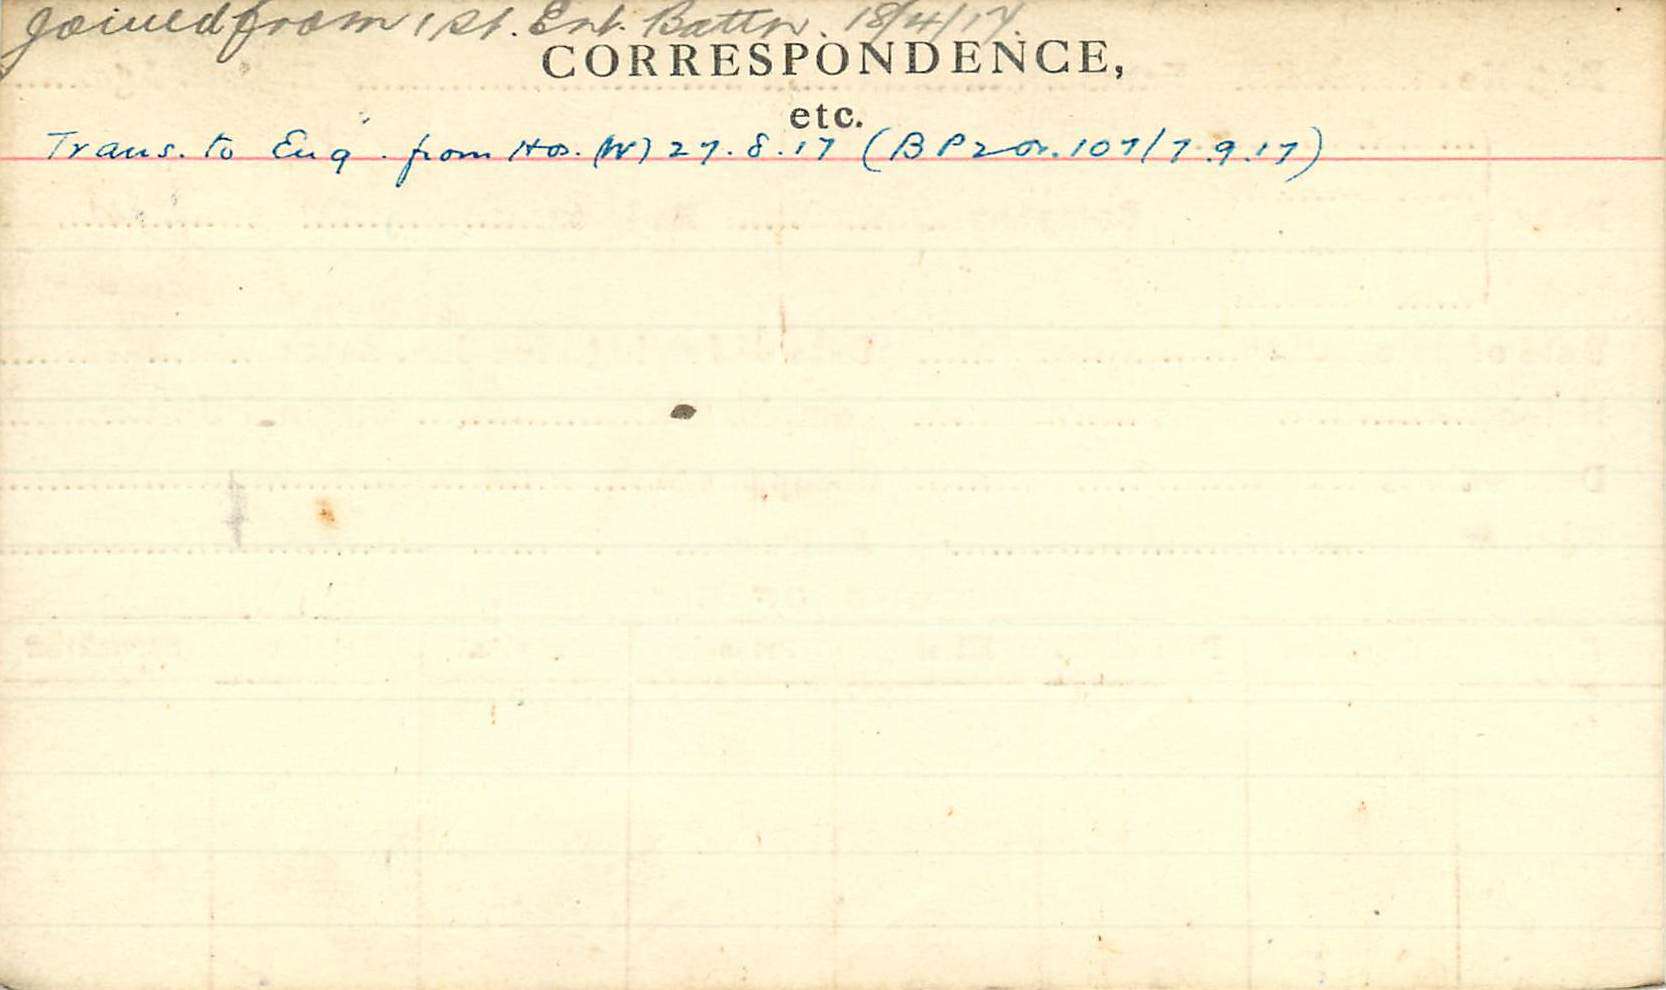 Joined from 1st. Ent. Battn. 18/4/17.
CORRESPONDENCE,
etc.
Trans. to Eng. from Hos. (W) 27.8.17 (B P2 or. 107/7.9.17)